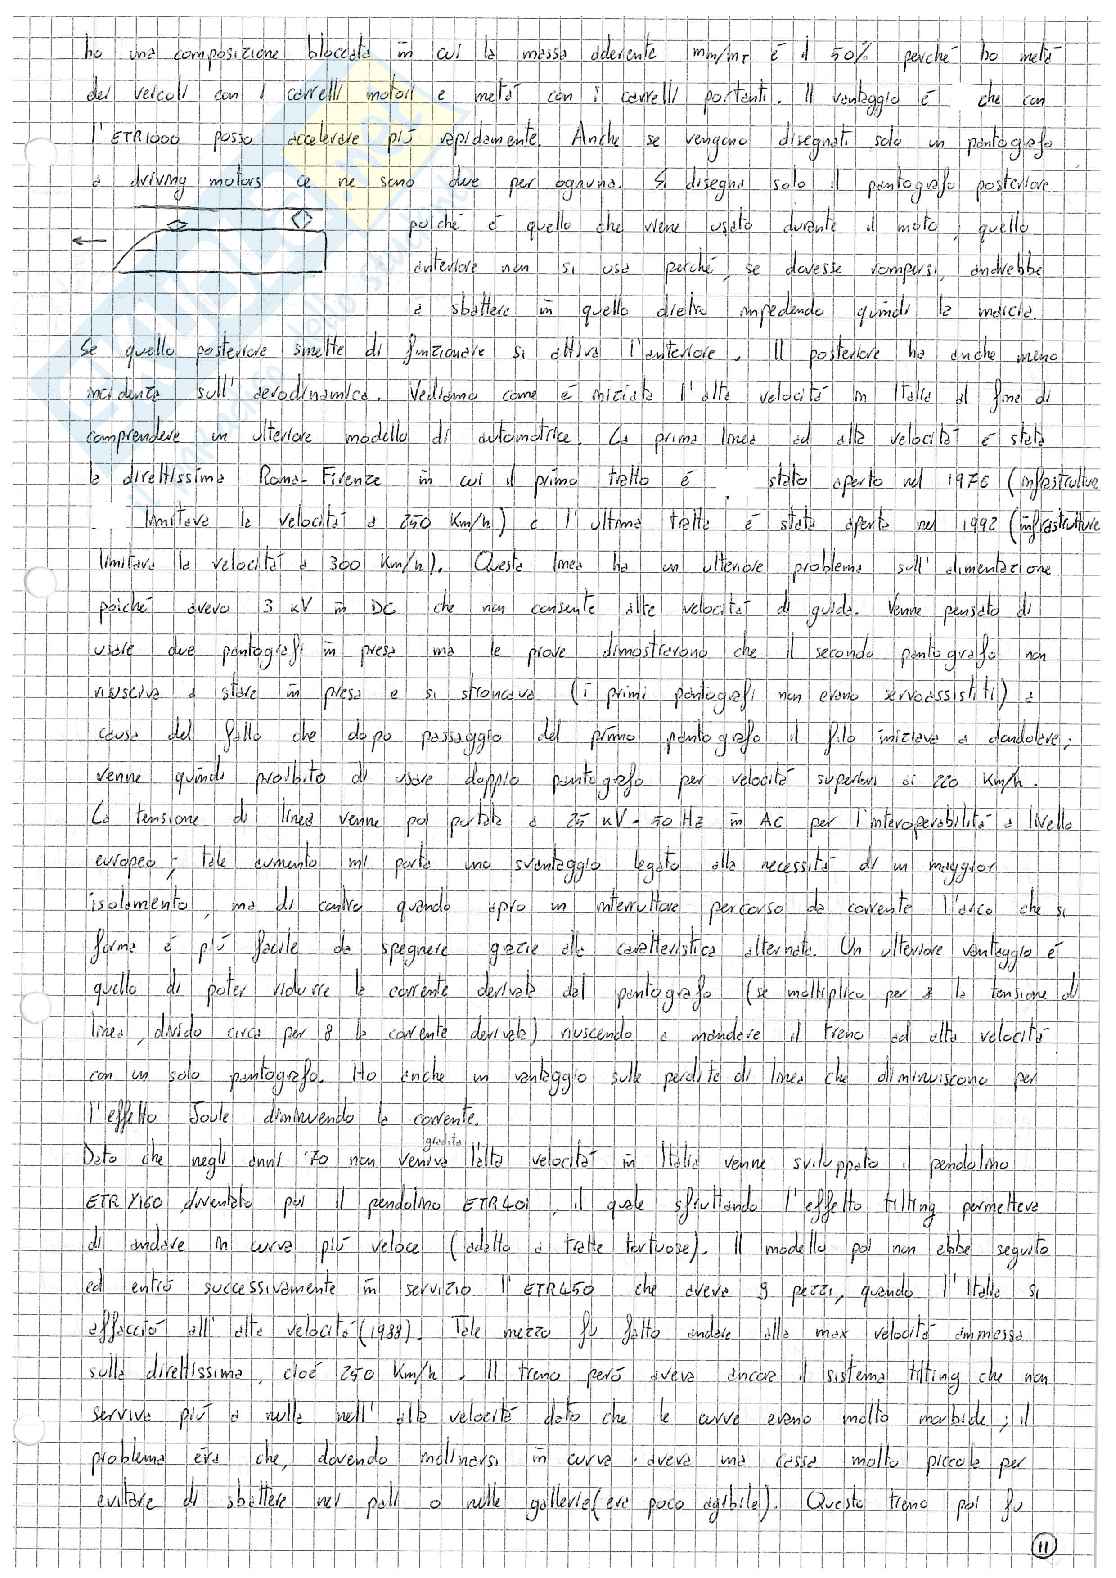 ha una composizione bloccata in cui la massa aderente mm/mT è il 50% perché ho metà
dei veicoli con i carrelli motori e metà con i carrelli portanti. Il vantaggio è che con
l'ETR1000 posso accelerare più rapidamente. Anche se vengono disegnati solo un pantografo
a driving motors ce ne sono due per ognuna. Si disegna solo il pantografo posteriore
poiché è quello che viene usato durante il moto; quello
anteriore non si usa perché, se dovesse rompersi, andrebbe
a sbattere in quello dietro impedendo quindi la marcia.
Se quello posteriore smette di funzionare si attiva l'anteriore. Il posteriore ha anche meno
incidenza sull'aerodinamica. Vediamo come è iniziata l'alta velocità in Italia al fine di
comprendere un ulteriore modello di automotrice. La prima linea ad alta velocità è stata
la direttissima Roma-Firenze in cui il primo tratto è stato aperto nel 1976 (infrastrutture
limitava la velocità a 250 Km/h) e l'ultima tratta è stata aperta nel 1992 (infrastrutture
limitava la velocità a 300 Km/h). Questa linea ha un ulteriore problema sull'alimentazione
poiché avevo 3 kV in DC che non consente alte velocità di guida. Venne pensato di
usare due pantografi in presa ma le prove dimostrarono che il secondo pantografo non
riusciva a stare in presa e si stroncava (i primi pantografi non erano servoassistiti) a
causa del fatto che dopo passaggio del primo pantografo il filo iniziava a dondolare;
venne quindi proibito di usare doppio pantografo per velocità superiori ai 220 Km/h.
La tensione di linea venne poi portata a 25 kV - 50 Hz in AC per l'interoperabilità a livello
europeo; tale aumento mi porta uno svantaggio legato alla necessità di un maggior
isolamento, ma di contro quando apro un interruttore percorso da corrente l'arco che si
forma è più facile da spegnere grazie alla caratteristica alternata. Un ulteriore vantaggio è
quello di poter ridurre la corrente derivata dal pantografo (se moltiplico per 8 la tensione di
linea, divido circa per 8 la corrente derivata) riuscendo a mandare il treno ad alta velocità
con un solo pantografo. Ho anche un vantaggio sulle perdite di linea che diminuiscono per
l'effetto Joule diminuendo la corrente.
gradita
Dato che negli anni '70 non veniva l'alta velocità in Italia venne sviluppato il pendolino
ETR Y160, diventato poi il pendolino ETR401, il quale sfruttando l'effetto tilting permetteva
di andare in curva più veloce (adatto a tratte tortuose). Il modello poi non ebbe seguito
ed entrò successivamente in servizio l'ETR450 che aveva 9 pezzi, quando l'Italia si
affacciò all'alta velocità (1988). Tale mezzo fu fatto andare alla max velocità ammessa
sulla direttissima, cioè 250 Km/h. Il treno però aveva ancora il sistema tilting che non
serviva più a nulla nell'alta velocità dato che le curve erano molto morbide; il
problema era che, dovendo inclinarsi in curva aveva una cassa molto piccola per
evitare di sbattere nei pali o nelle gallerie (era poco agibile). Questo treno poi fu
11